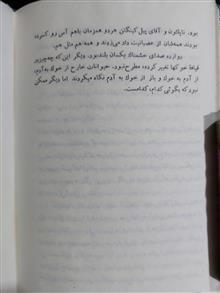 بود. ناپلئون و آقای پیل کینگتن هر دو همزمان باهم آس رو کرده
بودند همه‌شان از عصبانیت داد می‌زدند و همه هم مثل هم.
دوازده صدای خشمناک یکسان بلند بود. دیگر این که چه چیز در
قیافهٔ خوکها تغییر کرده، مطرح نبود. حیوانات خارج از خوک به آدم،
از آدم به خوک و باز از خوک به آدم نگاه میکردند اما دیگر ممکن
نبود که بگوئی کدام، کدامست.